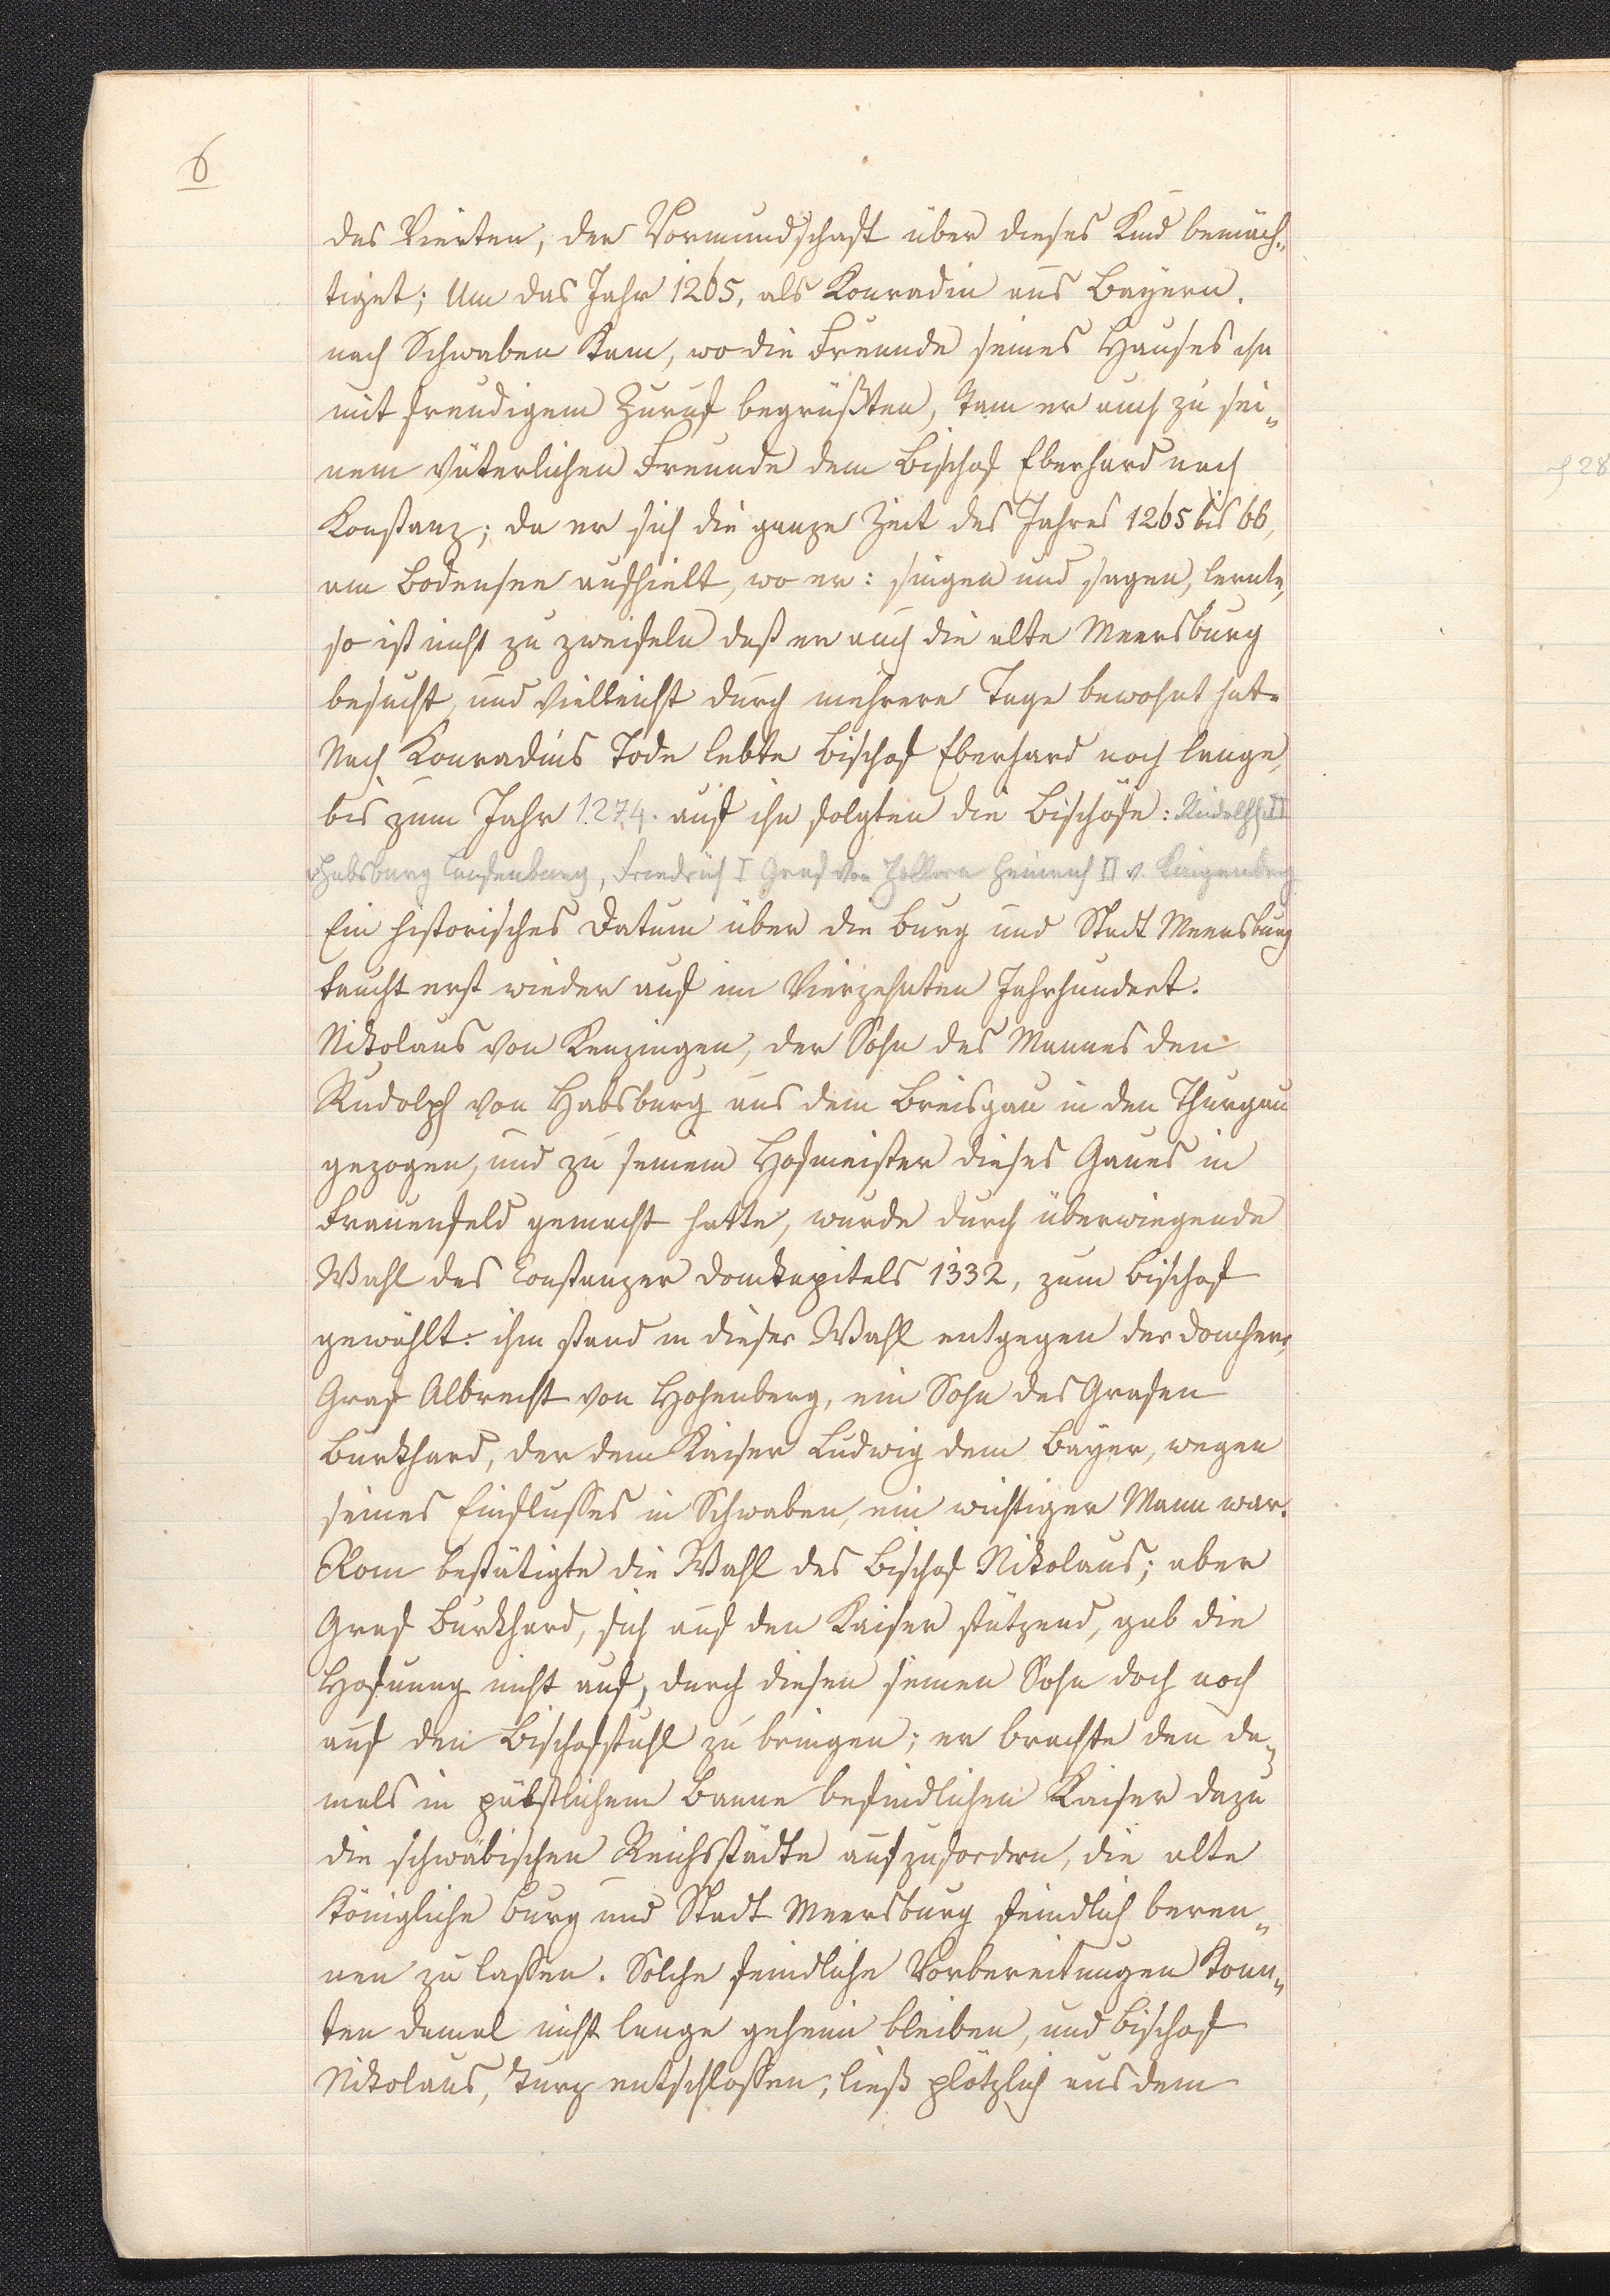 6
des Vierten, der Vormundschaft über dieses Kind bemäch„
tiget; Um das Jahr 1265, als Konradin aus Bayern.
nach Schwaben kam, wo die Freunde seines Hauses ihn
mit freudigem Zuruf begrüßten, kam er auch zu sei„
nem väterlichen Freunde dem Bischof Eberhard nach
Konstanz; da er sich die ganze Zeit des Jahres 1265 bis 66,
am Bodensee aufhielt, wo er: singen und sagen, lernte,
so ist nicht zu zweifeln daß er auch die alte Meersburg
besucht, und vielleicht durch mehrere Tage bewohnt hat.
Nach Konradins Tode lebte Bischof Eberhard noch lange,
bis zum Jahr 1274. auf ihn folgten die Bischöfe: Rudolf II
Habsburg Laufenburg, Friedrich I Graf von Zollern Heinrich II v. Klingenberg
Ein historisches Datum über die Burg und Stadt Meersburg
taucht erst wieder auf im Vierzehnten Jahrhundert.
Nikolaus von Kenzingen, der Sohn des Mannes den
Rudolph von Habsburg aus dem Breisgau in den Thurgau
gezogen, und zu seinem Hofmeister dieses Gaues in
Frauenfeld gemacht hatte, wurde durch überwiegende
Wahl des Constanzer Domkapitels 1332, zum Bischof
gewählt. ihm stand in dieser Wahl entgegen der Domherr,
Graf Albrecht von Hohenberg, ein Sohn des Grafen
Burkhard, der dem Kaiser Ludwig dem Bayer, wegen
seines Einflusses in Schwaben, ein wichtiger Mann war.
Rom bestätigte die Wahl des Bischof Nikolaus; aber
Graf Burkhard, sich auf den Kaiser stützend, gab die
Hofnung nicht auf, durch diesen seinen Sohn doch noch
auf den Bischofstuhl zu bringen; er brachte den da„
mals in päbstlichem Banne befindlichen Kaiser dazu
die schwäbischen Reichsstädte aufzufordern, die alte
königliche Burg und Stadt Meersburg feindlich beren„
nen zu lassen. Solche feindliche Vorbereitungen konn„
ten damal nicht lange geheim bleiben, und Bischof
Nikolaus, kurz entschlossen, ließ plötzlich aus dem
28